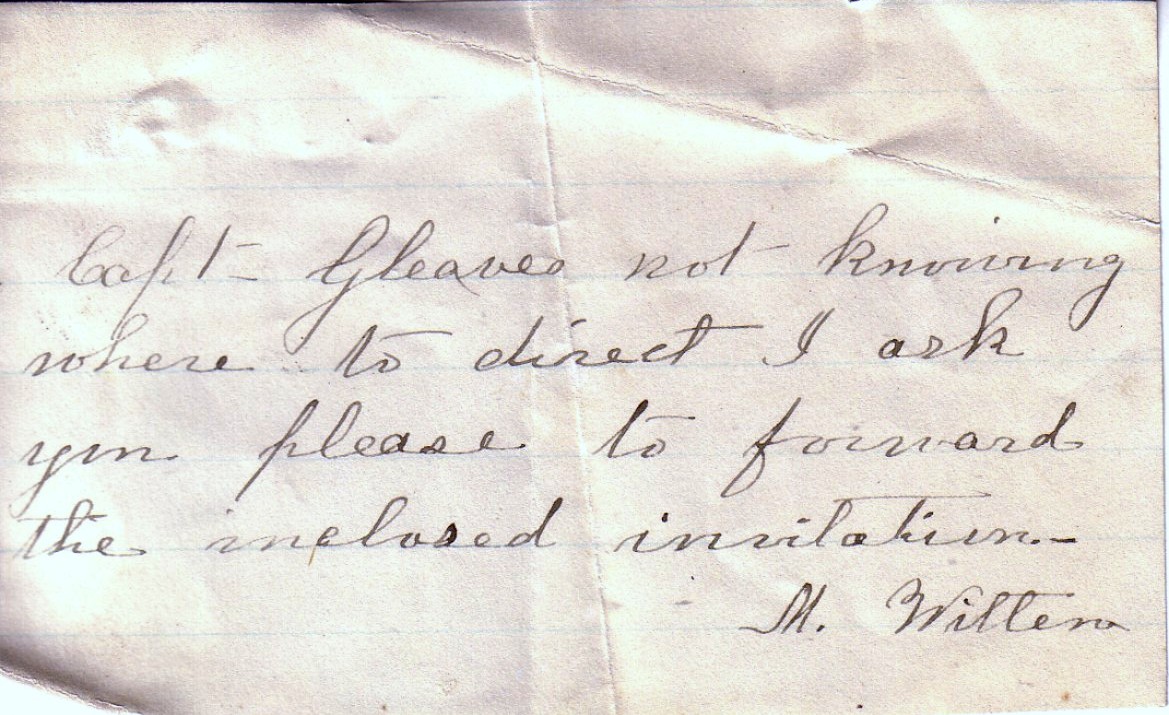 Capt- Gleaves not knowing
where to direct I ask
you please to forward
the inclosed invitation.-
M.